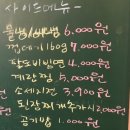 사이드메뉴
물냉/비냉 6.000원
껍데기160g 7.000원
팔도비빔면 4.000원
계란찜 5.000원
소세지전 3.900원
된장찌개추가시 2.000원
공기밥 1.000원